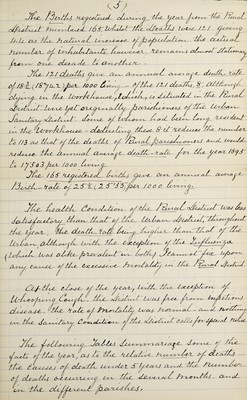 (5)
The Births registered during the year from the Rural
District numbered 165 whilst the Deaths were 121 giving
44 as the natural increase of population. the actual
number of inhabitants however remains almost stationary
from one decade to another.
The 121 deaths give an annual average death rate
of 18.7 per 1000 living. Of the 121 deaths, 8, although
dying in the Workhouse, which is situated in the Rural
District were yet originally parishioners of the Urban
Sanitary District. Some of whom had been long resident
in the Workhouse - deducting these 8 it reduces the number
to 113 as that of the deaths of Rural parishioners and would
reduce the annual average death rate for the year 1895
to 17.503 per 1000 living.
The 165 registered births give an annual average
Birth rate of 25.5 per 1000 living.
The health Condition of the Rural District was less
satisfactory than that of the Urban District, throughout
the year. The death rate being higher than that of the
Urban, although with the exception of the Influenza
(which was alike prevalent in both) I cannot fix upon
any cause of the excessive mortality in the Rural district
At the close of the year, with the exception of
Whooping Cough, the District was free from infectious
disease. the rate of Mortality was normal - and nothing
in the Sanitary Condition of the District calls for special notice
The following Tables Summarise some of the
facts of the year, as to the relative number of deaths -
the causes of death under 5 years and the number
of deaths occurring in the several months and
in the different parishes.